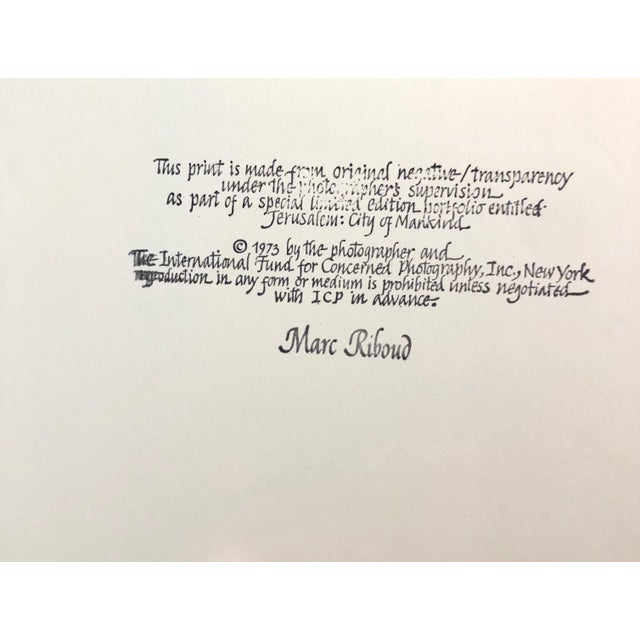 This print is made from original negative/transparency
under the photographer's supervision
as part of a special limited edition portfolio entitled
Jerusalem: City of Mankind
© 1973 by the photographer and
The International Fund for Concerned Photography, Inc., New York
reproduction in any form or medium is prohibited unless negotiated
with ICP in advance.
Marc Riboud